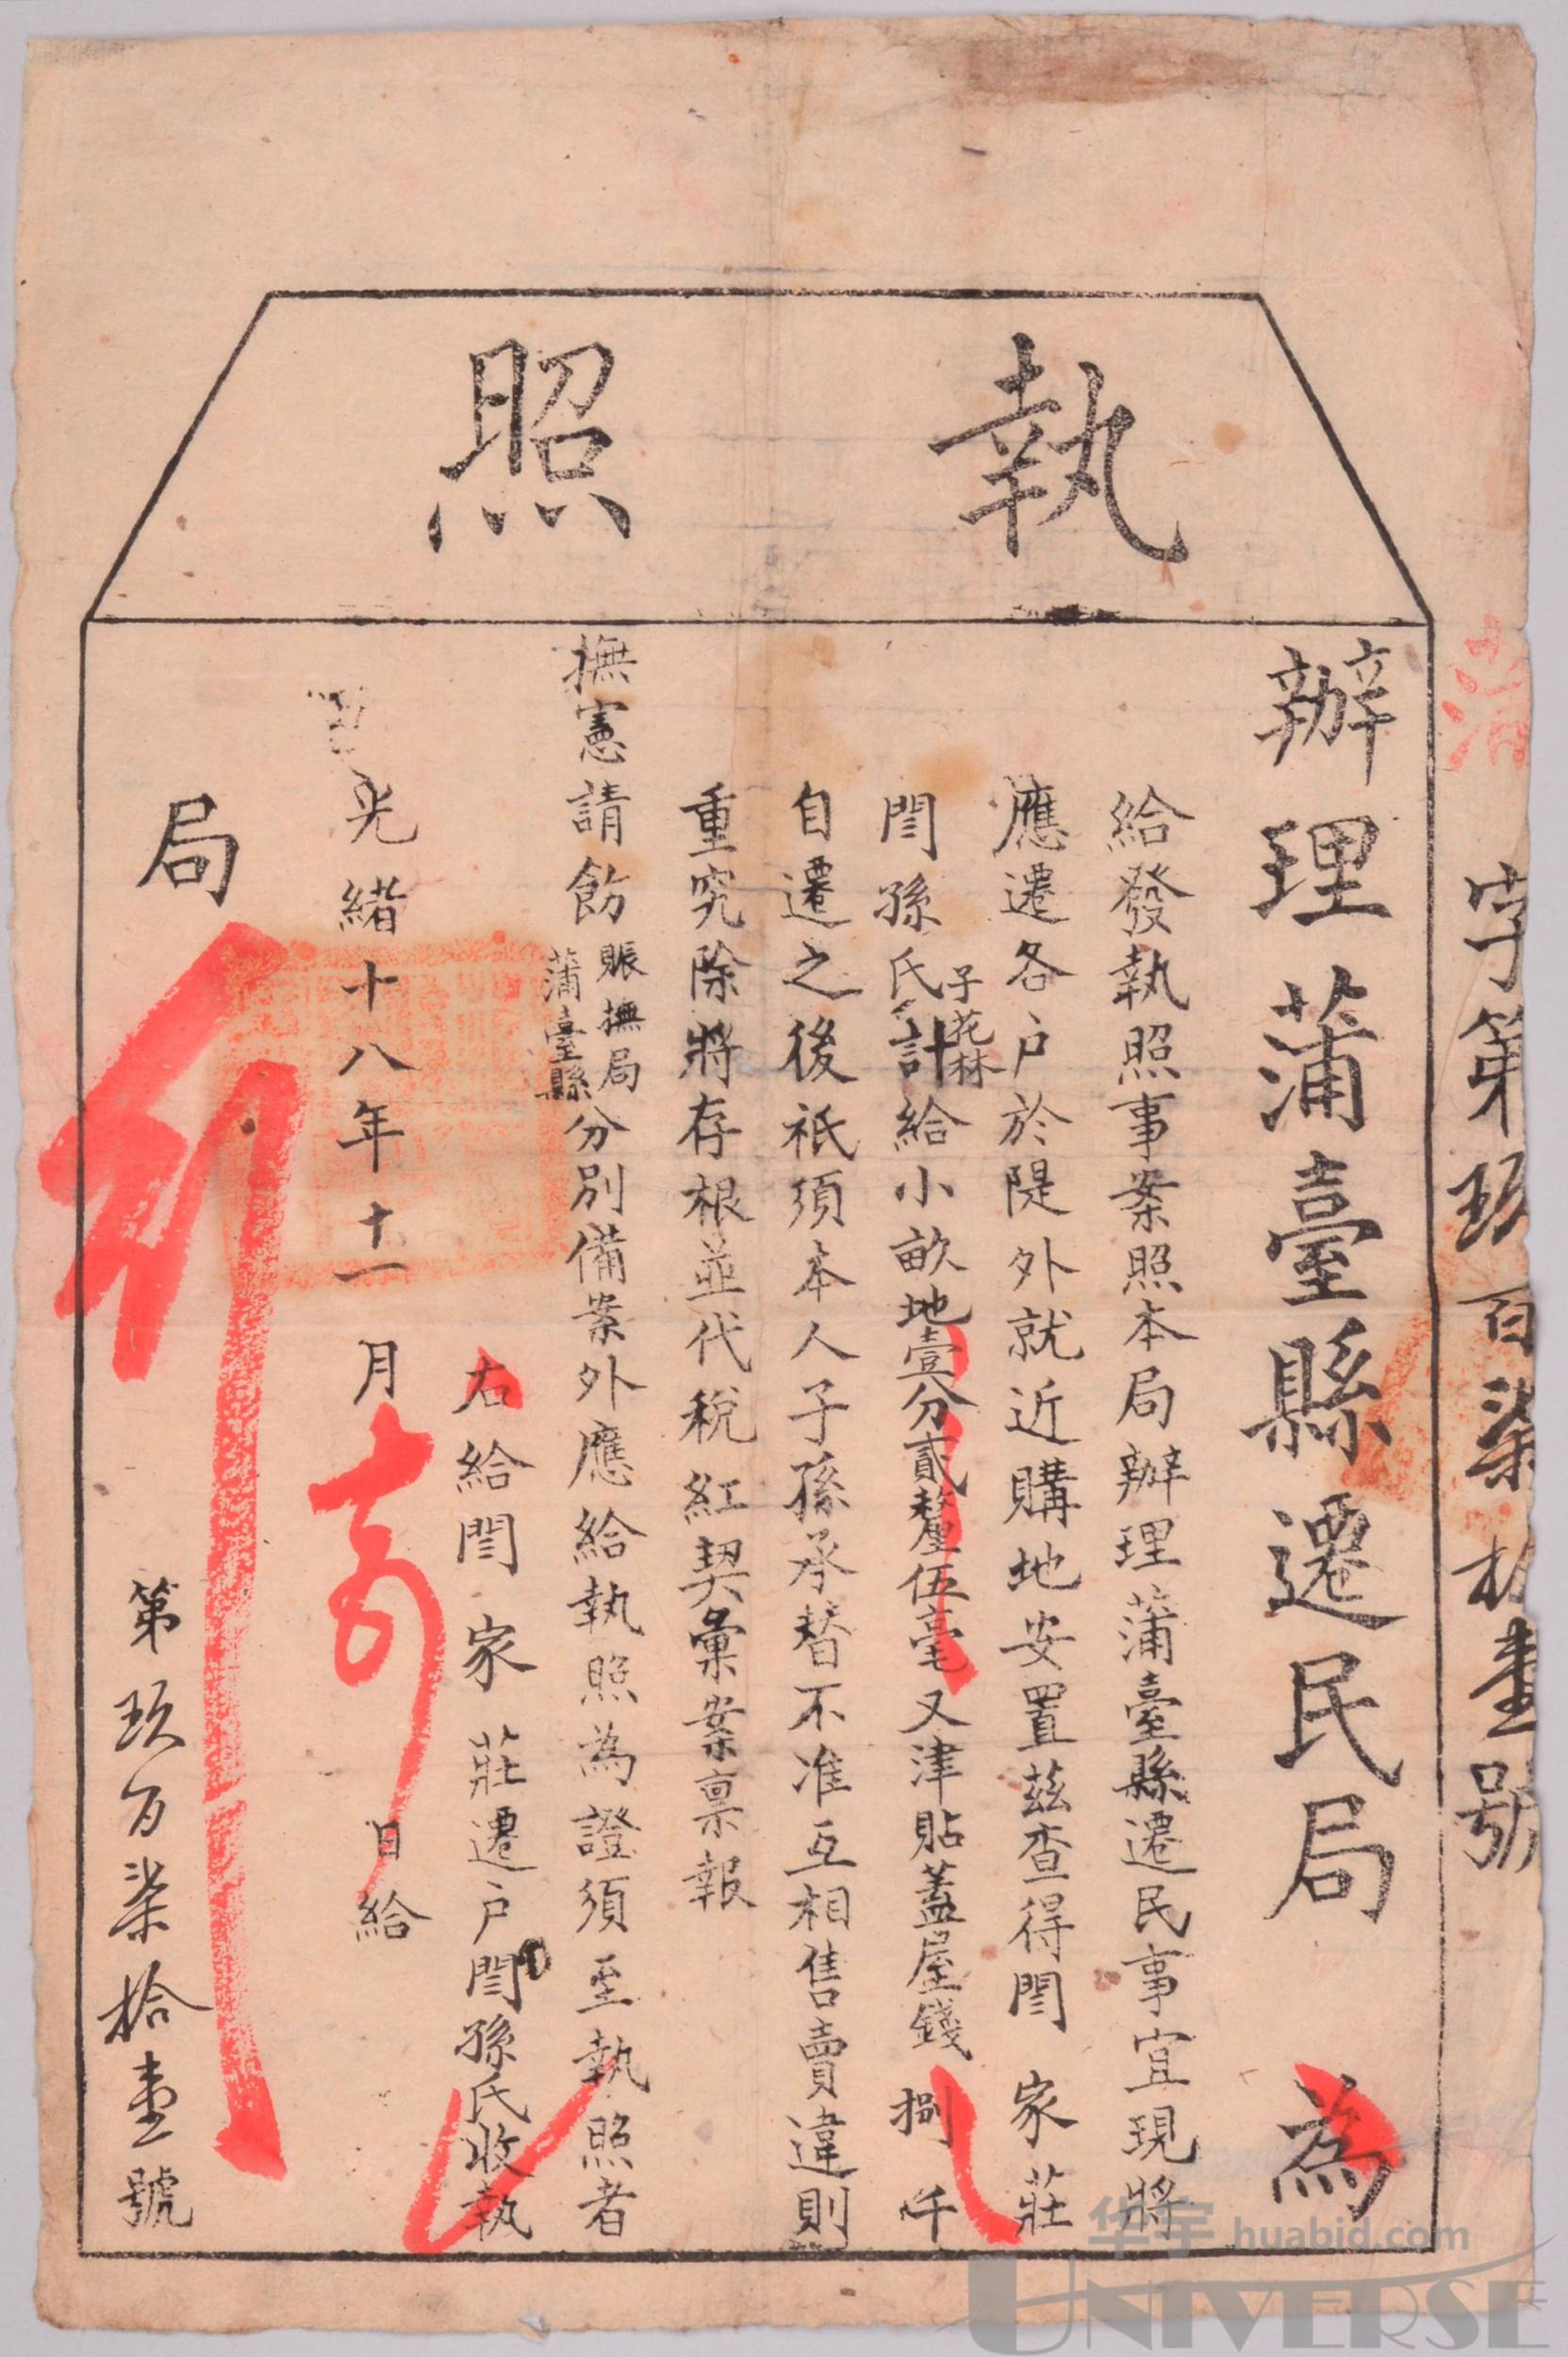 執照
字第玖百柒拾壹號
辦理蒲臺縣遷民局為
給發執照事案照本局辦理蒲臺縣遷民事宜現將
應遷各户於隄外就近購地安置茲查得閆家莊
閆孫氏子花林計給小畝地壹分貳釐伍毫又津貼蓋屋錢捌千
自遷之後祇須本人子孫承替不准互相售賣違則
重究除將存根並代稅紅契彙案稟報
撫憲請飭賑撫局蒲臺縣分別備案外應給執照為證須至執照者
右給閆家莊遷户閆孫氏收執
光緒十八年十一月日給
局
第玖百柒拾壹號
华宇 huabid.com
UNIVERSE